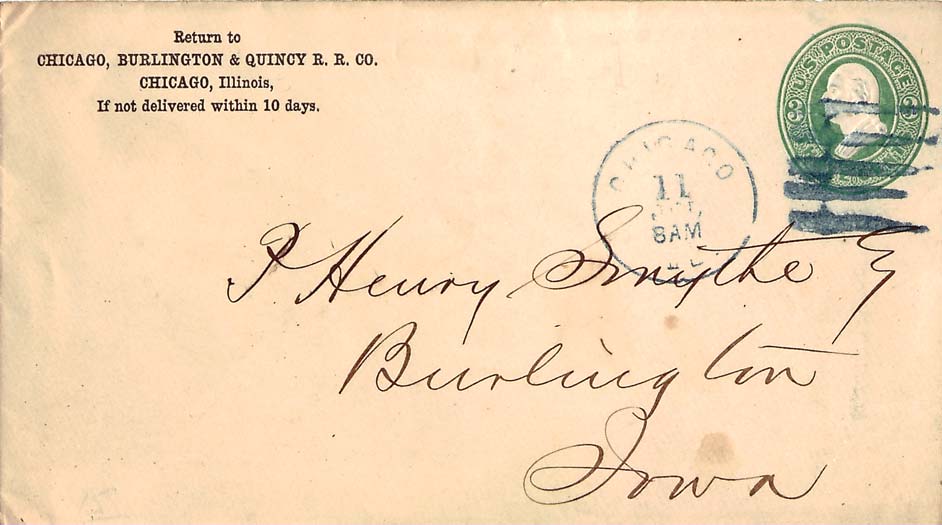 Return to
CHICAGO, BURLINGTON & QUINCY R. R. CO.
CHICAGO, Illinois,
If not delivered within 10 days.
U.S. POSTAGE
3 3
CHICAGO
11
8AM
P. Henry Smythe
Burlington
Iowa